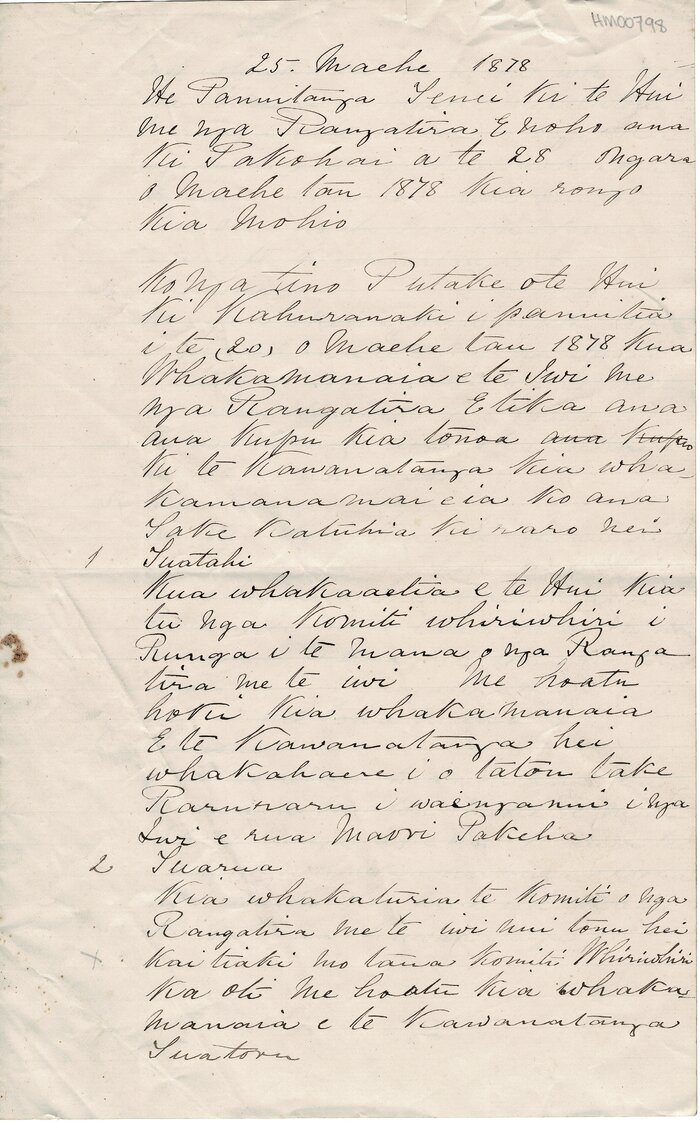 HM00798
25. Maehe 1878
He Panuitanga Tenei ki te Hui
me nga Rangatira E noho ana
ki Pakohai a te 28 onga ra
o Maehe tau 1878 kia rongo
kia mohio
Ko nga tino Putake ote Hui
ki Kahuranaki i panuitia
i te (20) o Maehe tau 1878 kua
Whakamanaia e te Iwi me
nga Rangatira E tika ana
ana kupu kia tonoa ana kupu
ki te Kawanatanga kia wha-
kamana mai e ia ko ana
Take katuhia ki raro nei
1 Tuatahi
Kua whakaaetia e te Hui kia
tu nga Komiti whiriwhiri i
Runga i te mana o nga Ranga
tira me te iwi me hoatu
hoki kia whakamanaia
E te Kawanatanga hei
whakahaere i o tatou take
Raruraru i waenganui i nga
Iwi e rua Maori Pakeha
2 Tuarua
Kia whakaturia te Komiti o nga
Rangatira me te iwi nui tonu hei
Kaitiaki mo taua Komiti Whiriwhiri
x Ka oti me hoatu kia whaka-
manaia e te Kawanatanga
Tuatoru